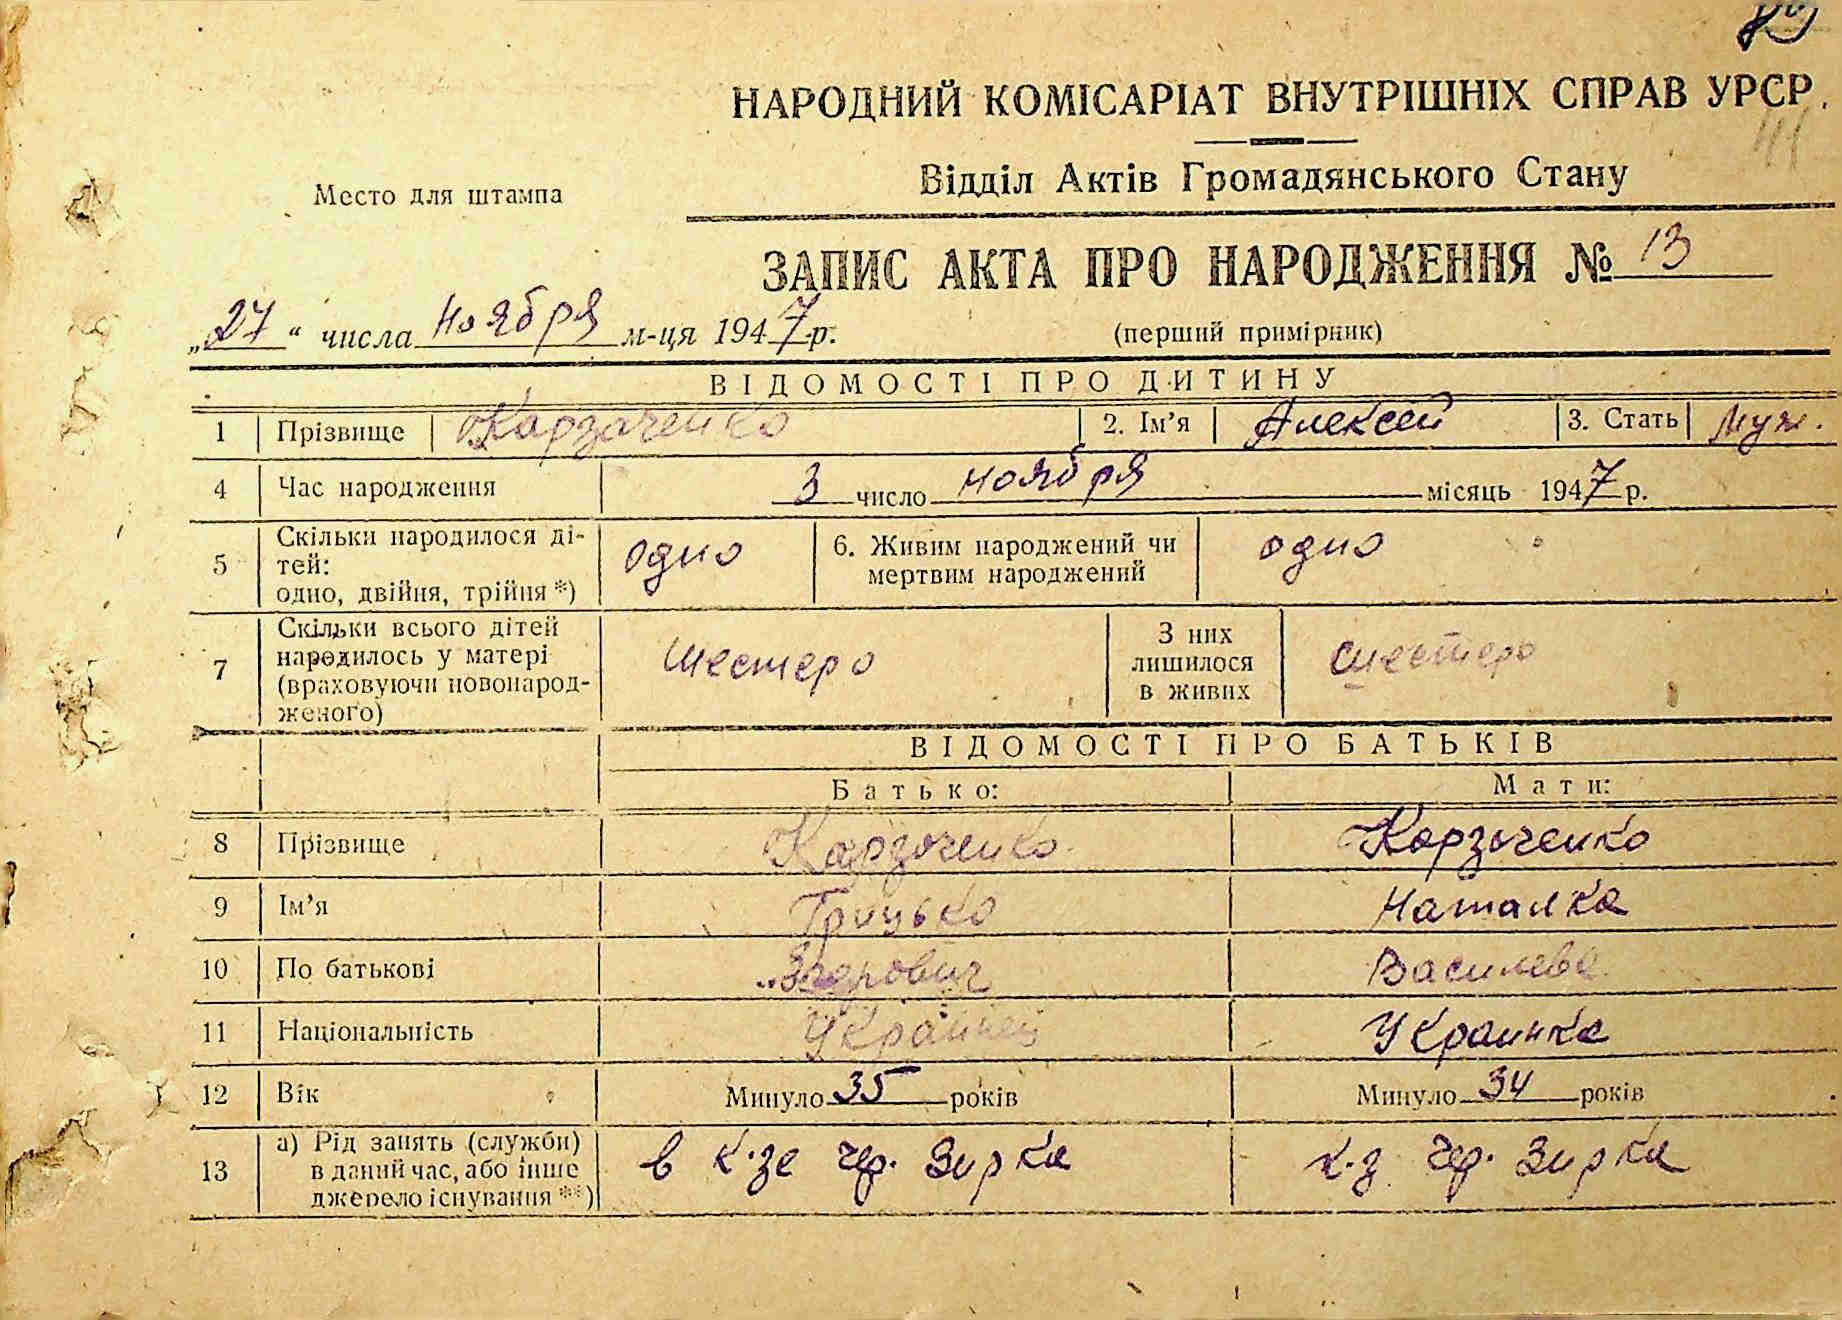 НАРОДНИЙ КОМІСАРІАТ ВНУТРІШНІХ СПРАВ УРСР.
Место для штампа
Відділ Актів Громадянського Стану
ЗАПИС АКТА ПРО НАРОДЖЕННЯ № 13
„27“ числа ноября м-ця 1947 р.
(перший примірник)
ВІДОМОСТІ ПРО ДИТИНУ
1 Прізвище Карзаченко 2. Ім’я Алексей 3. Стать муж.
4 Час народження 3 число ноября місяць 1947 р.
5 Скільки народилося ді-
тей:
одно, двійня, трійня *) одно
6. Живим народжений чи
мертвим народжений одно
7 Скільки всього дітей
народилось у матері
(враховуючи новонарод-
женого) шестеро
З них
лишилося
в живих шестеро
ВІДОМОСТІ ПРО БАТЬКІВ
Батько: Мати:
8 Прізвище Карзаченко Карзаченко
9 Ім’я Грицько Наталка
10 По батькові Василева
11 Національність Українец Украинка
12 Вік Минуло 35 років Минуло 34 років
13 а) Рід занять (служби)
в даний час, або інше
джерело існування **) в к-зе чер. Зирка к-з чер. Зирка